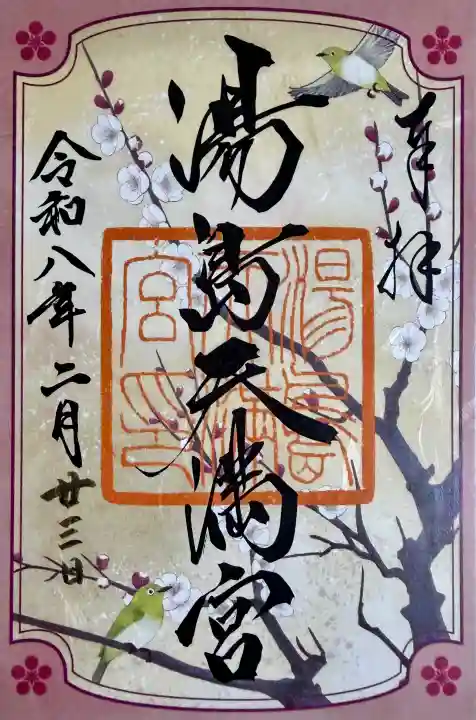 奉拝
湯島天満宮
湯島
天満
宮印
令和八年二月廿三日